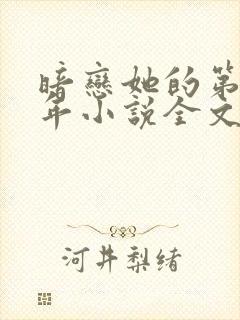 暗戀她的第
年小說全文
河井梨緒